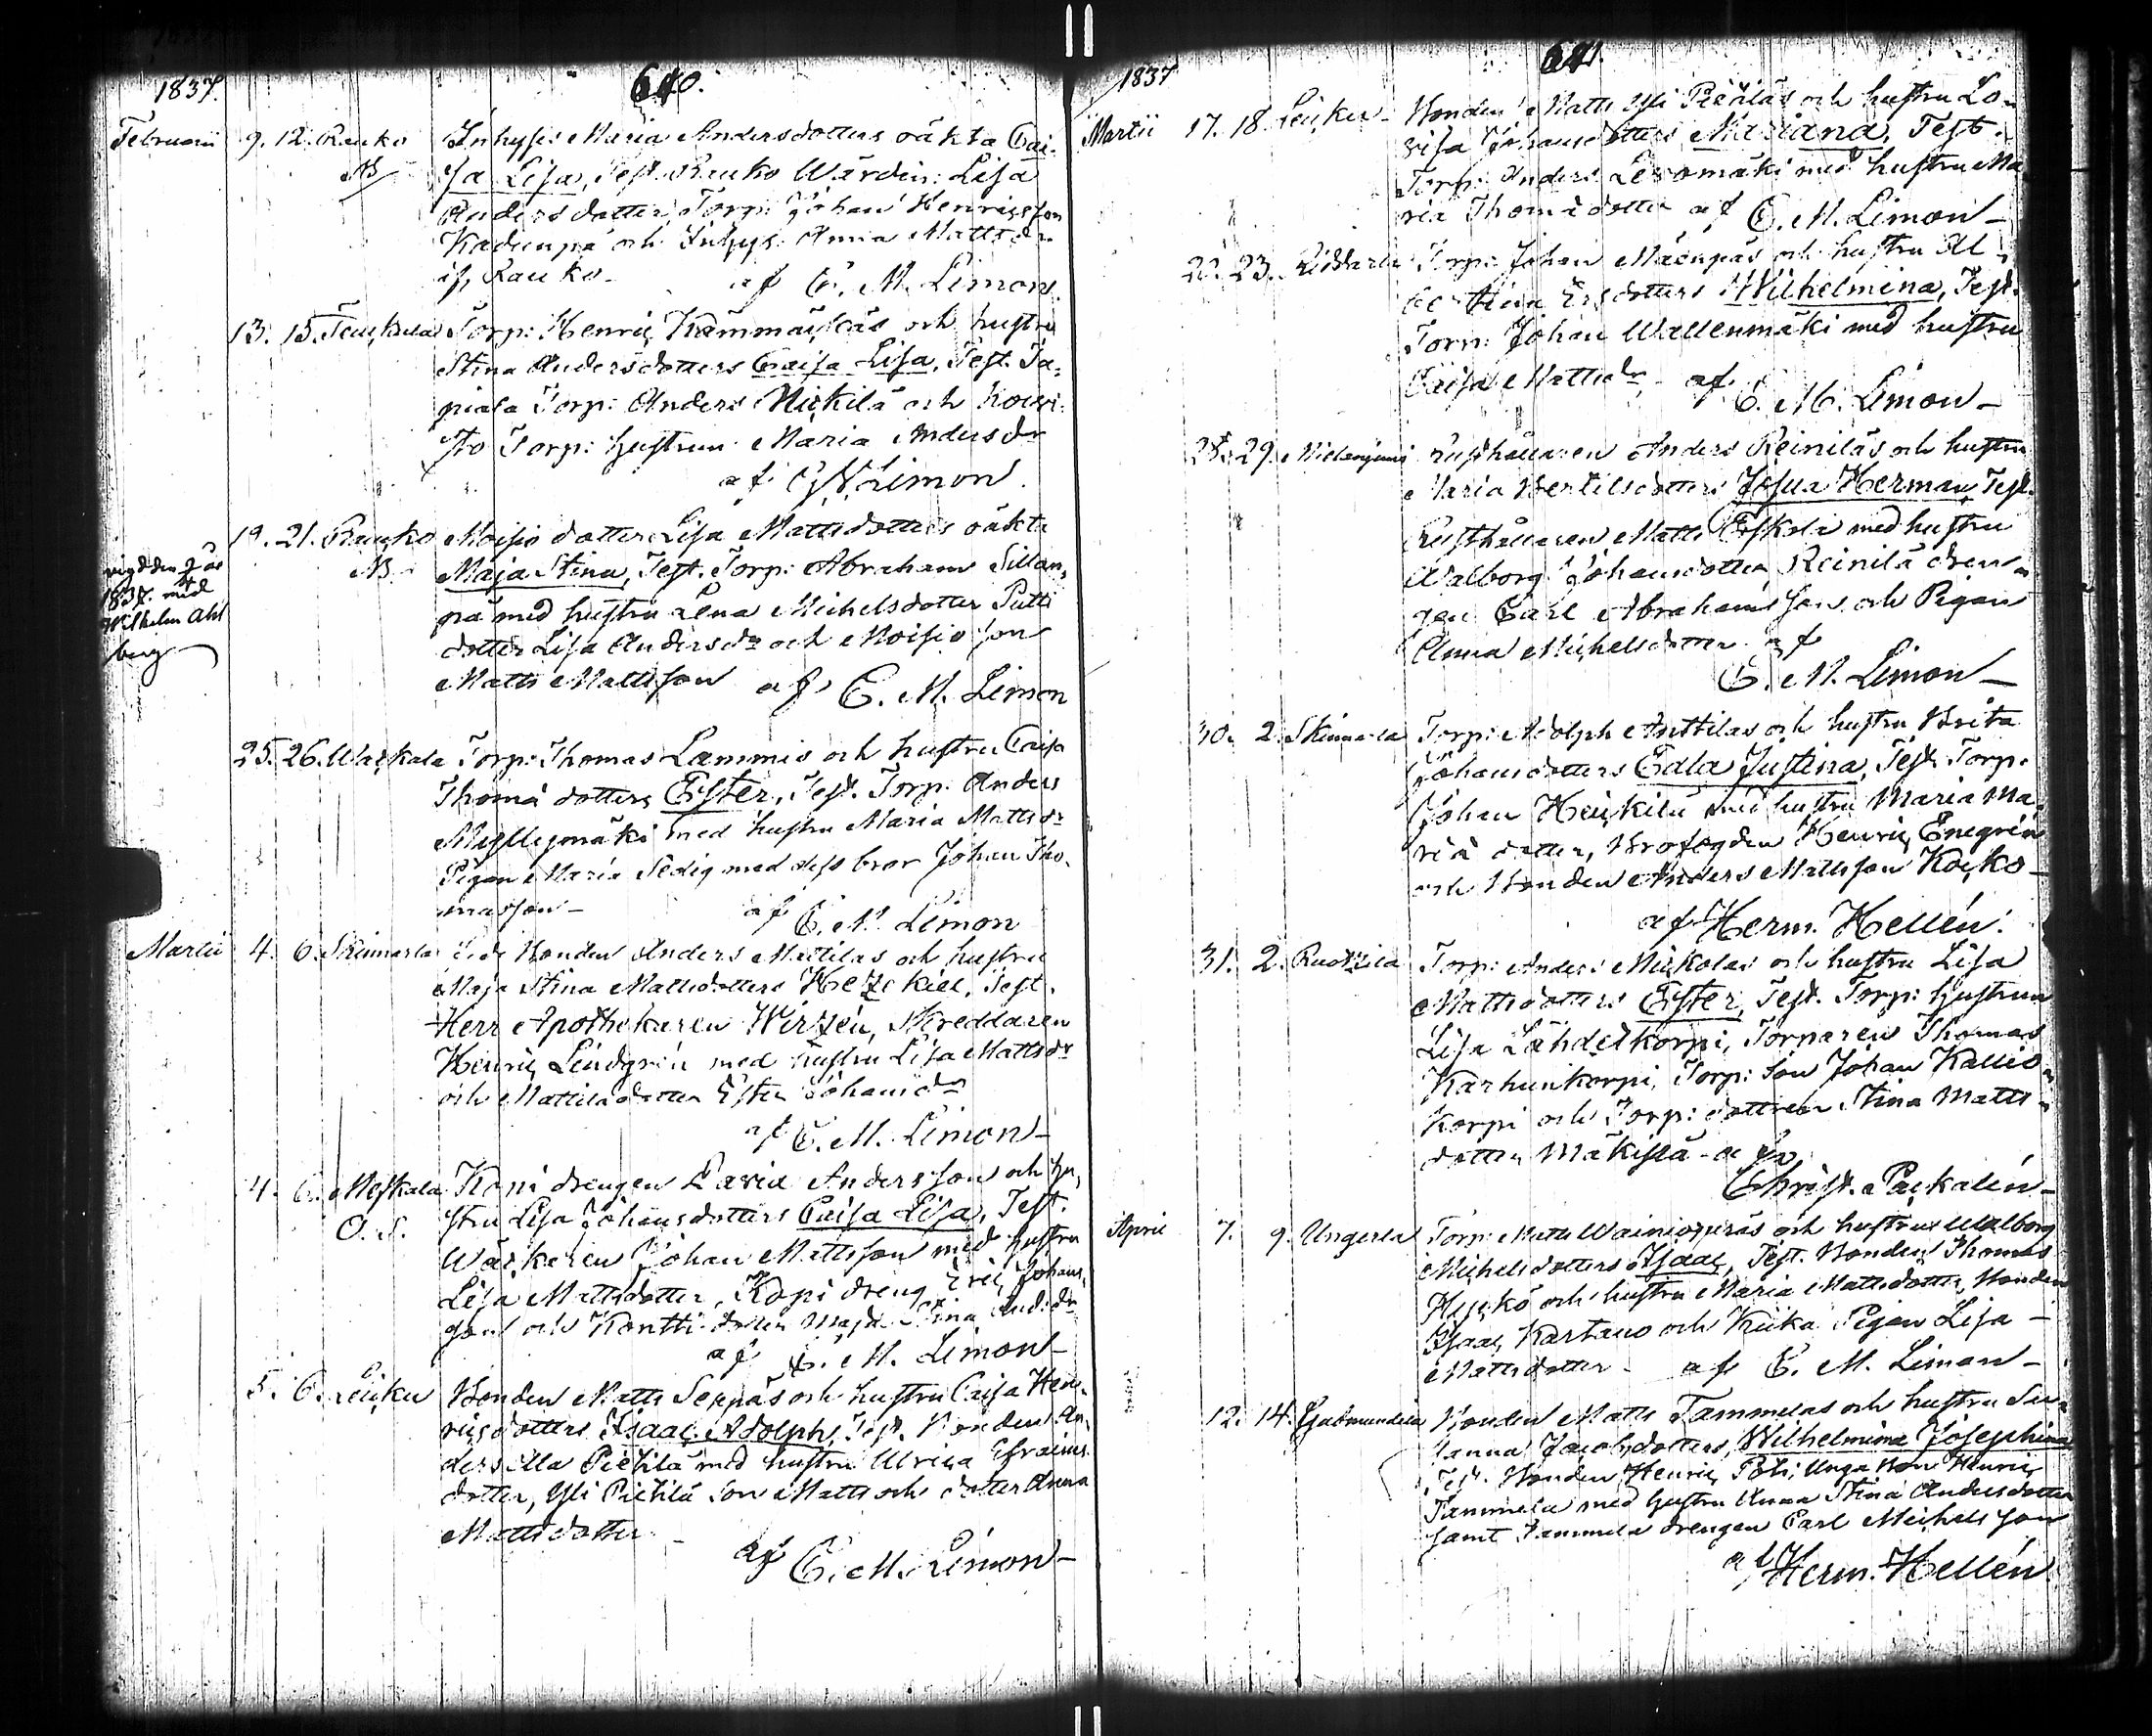 1837.
640.
Februarii 9. 12. Rauko Inhyses Maria Andersdotters oäkta Cai-
NB sa Lisa, Test. Rauko Wärdin: Lisa
Andersdotter, Torp: Johan Henricsson
och Inhys: Anna Mattsdr
if. Rauko. af C. M. Limon
13. 15. Torp: Henric och hustru
Stina Andersdotters Caisa Lisa, Test. Ta-
piala Torp: Anders Mickilä och
sto Torp: hustrun Maria Andersdr
af C M Limon
19. 21. Rauko Moisio dotter Lisa Mattsdotters oäkta
NB Maja Stina, Test. Torp: Abraham Sillan-
pä med hustru Lena Michelsdotter Putti
dotter Lisa Andersdr och Moisio son
Matts Mattsson af C. M. Limon
wigd den
1837. med
Wilhelm Ahl
berg
25. 26. Torp: Thomas Lammis och hustru Caisa
Thomædotters Ester, Test. Torp. Anders
Myllymäki med hustru Maria Mattsdr
Pigan Maria Sedig med dess bror Johan Tho-
masson - af C. M. Limon
Martii 4. 6. Skinnarla Bonden Anders Mattilas och hustru
Maja Stina Mattsdotters Hezekiel, Test.
Herr Apothekaren Wirzén, Skreddaren
Henric Lindgrén med hustru Lisa Mattsdr
och Mattila dotter Ester Johansdr
af C. M. Limon -
4. 6. Meskala drengen David Andersson och hu-
O. S. stru Lisa Johansdotters Caisa Lisa, Test.
Johan Mattsson med hustru
Lisa Mattsdotter, dreng Eric Johans-
son och Kontti dotter Maja Stina And:dr
af C. M. Limon -
5. 6. Leicku Bonden Matts Seppäs och hustru Caisa Hen-
ricsdotters Isaac Adolph, Test. Bonden An-
ders Ala Pietilä med hustru Ulrica Efraims
dotter, Yli Pietilä son Matts och dotter Anna
Mattsdotter -
af C. M. Limon -
1837
641.
Martii 17. 18. Leicku - Bonden Matts Yli Pietiläs och hustru Lo-
visa Johansdotters Mariana, Test.
Torp: Anders Levomäki med hustru Ma
ria Thomædotter af C. M. Limon -
22. 23. Torp: Johan Mäenpäs och hustru Al
bertina Ersdotters Wilhelmina, Test.
Torp: Johan Wallenmäki med hustru
Caisa Mattsdr - af C. M. Limon -
28. 29. Rusthållaren Anders Reiniläs och hustru
Maria Bertilsdotters Josua Herman, Test.
Rusthållaren Matts Eskola med hustru
Walborg Johansdotter, Reinilä dren-
gen Carl Abrahamsson och Pigan
Anna Michelsdotter af
C. M. Limon -
30. 2. Skinnarla Torp: Adolph Anttilas och hustru Brita
Johansdotters Edla Justina, Test. Torp.
Johan Heickilä med hustru Maria Ma-
riædotter, Brofogden Henric Enegrén
och Bonden Anders Mattsson Kocko -
af Herm. Hellén.
31. 2. Torp: Anders Mickolas och hustru Lisa
Mattsdotters Ester, Test. Torp: hustrun
Lisa Lähdetkorpi, Torparen Thomas
Karhunkorpi, Torp: son Johan Kallio-
korpi och Torp: dottren Stina Matts-
dotter Mäkilä - af
Christ. Päckalén -
April 7. 9. Ungerla Torp: Matts Wainionpääs och hustru Walborg
Michelsdotters Isaac, Test. Bonden Thomas
och hustru Maria Mattsdotter, Bonden
Isaac Kartano och Kiika Pigan Lisa -
Mattsdotter - af C. M. Limon -
12. 14. Gudmundila Bonden Matts Tammelas och hustru Su-
sanna Jacobsdotters Wilhelmina Josephina
Test. Bonden Henric, Unga Bon. Henric
Tammela med hustru Anna Stina Andersdotter
samt Tammela drengen Carl Michelsson
af Herm. Hellén